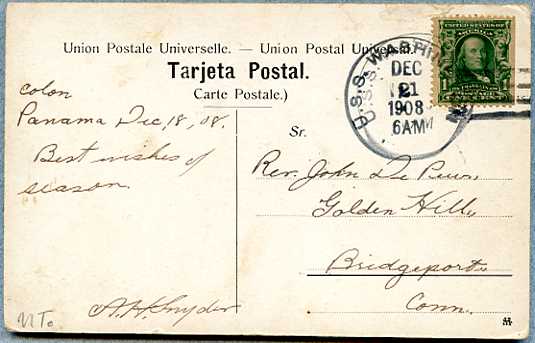 Union Postale Universelle. — Union Postal Universal.
Tarjeta Postal.
Carte Postale.)
U.S.S. WASHIN
DEC
21
1908
6AM
UNITED STATES OF
AMERICA
1
ONE CENT
colon
Panama Dec, 18, 08.
Best wishes of
season
Sr.
Rev. John De Peu,
Golden Hill,
Bridgeport
Conn.
A.H. Snyder